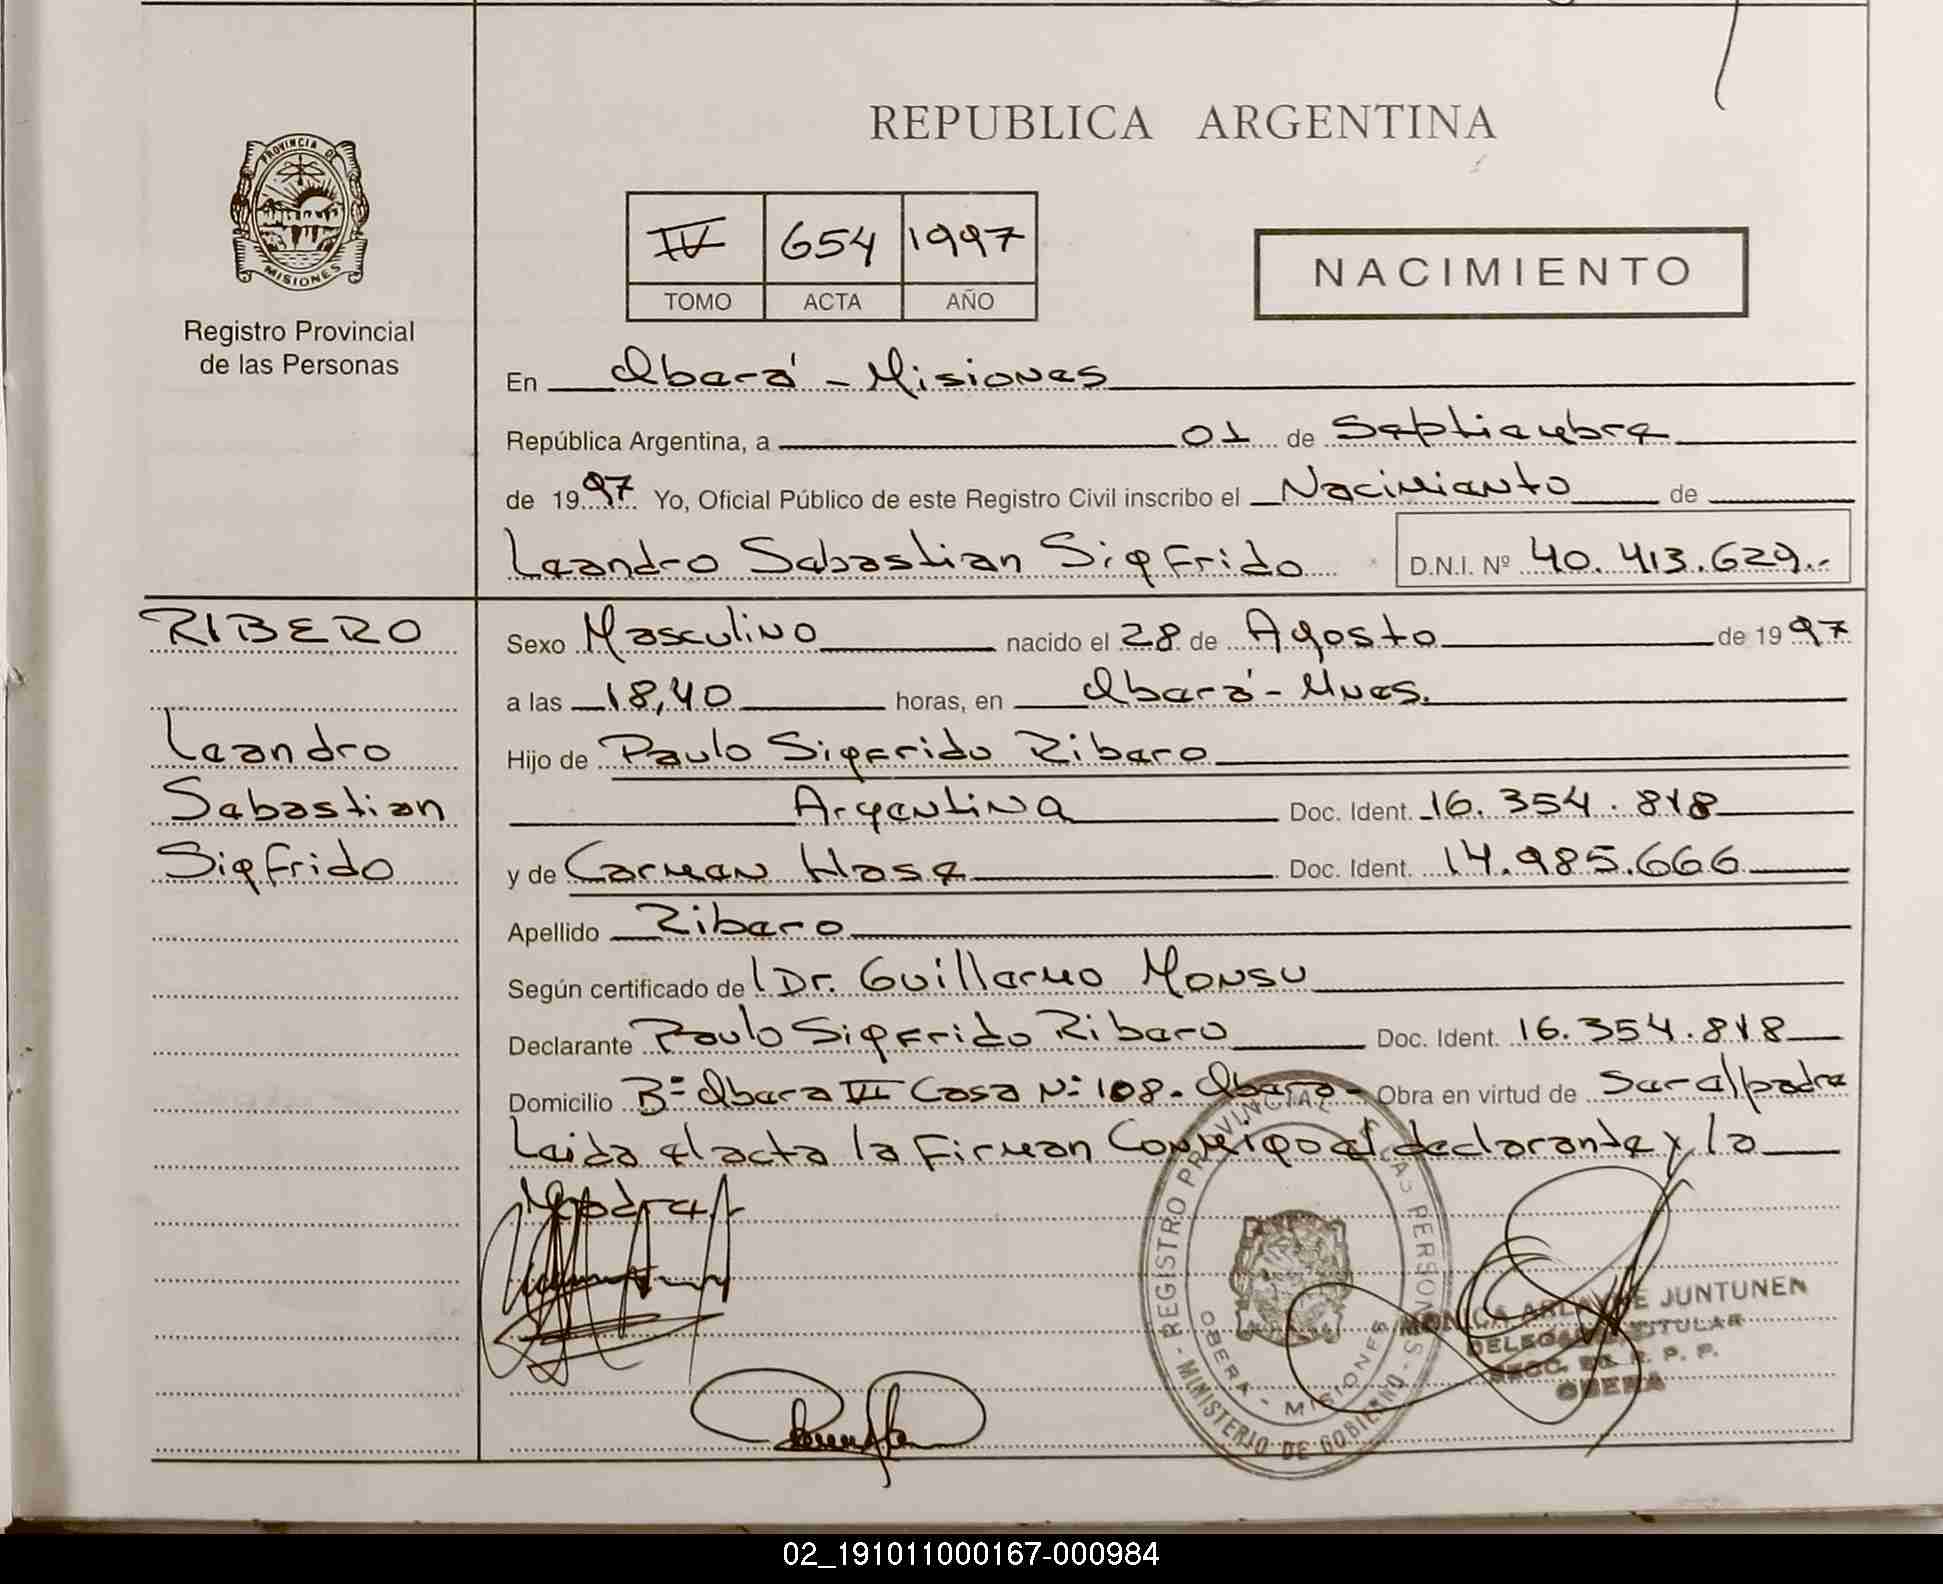 REPUBLICA ARGENTINA
PROVINCIA DE
MISIONES
Registro Provincial
de las Personas
IV 654 1997
TOMO ACTA AÑO
NACIMIENTO
En Oberá - Misiones
República Argentina, a 01 de Septiembre
de 1997 Yo, Oficial Público de este Registro Civil inscribo el Nacimiento de
Leandro Sebastian Sigfrido D.N.I. Nº 40.413.629.-
RIBERO
Leandro
Sebastian
Sigfrido
Sexo Masculino nacido el 28 de Agosto de 1997
a las 18,40 horas, en Oberá - Mnes.
Hijo de Paulo Sigfrido Ribero
Argentina Doc. Ident. 16.354.818
y de Carmen Hase Doc. Ident. 14.985.666
Apellido Ribero
Según certificado de Dr. Guillermo Monsu
Declarante Paulo Sigfrido Ribero Doc. Ident. 16.354.818
Domicilio Bº Obera VI Casa Nº 108. Obera - Obra en virtud de Ser el padre
Leida el acta la firman Conmigo el declarante y la
Madre
REGISTRO PROVINCIAL DE LAS PERSONAS - MINISTERIO DE GOBIERNO -
OBERA - MISIONES
MONICA JUNTUNEN
DELEGADA TITULAR
R. P. P.
OBERA
02_191011000167-000984